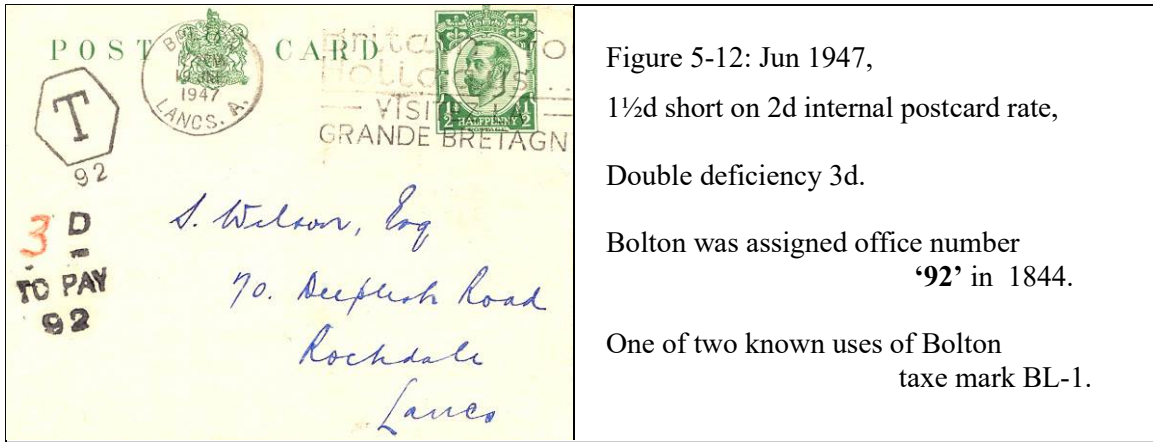 POST CARD
BOLTON
19 JNE
1947
LANCS. A.
VISITEZ LA
GRANDE BRETAGN
1/2 HALFPENNY 1/2
POSTAGE
T
92
3 D
TO PAY
92
S. Wilson, Esq
70. Deeplish Road
Rochdale
Lancs
Figure 5-12: Jun 1947,
1½d short on 2d internal postcard rate,
Double deficiency 3d.
Bolton was assigned office number
‘92’ in 1844.
One of two known uses of Bolton
taxe mark BL-1.